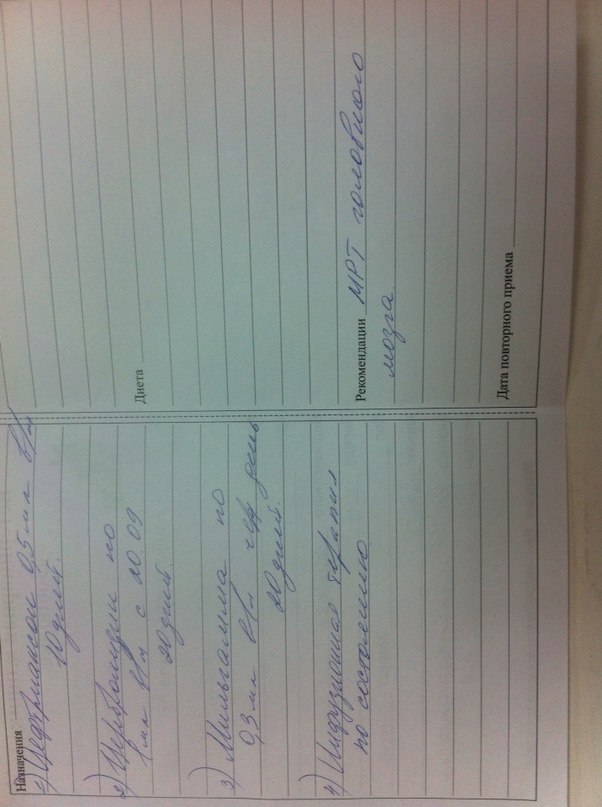 Назначения
1) Цефтриаксон 0,5 мл в/м
10 дней.
2) Церебролизин по
1 мл в/м с 20 09
20 дней.
3) Мильгамма по
0,3 мл в/м чер день
20 дней
4) Инфузионная терапия
по состоянию
Диета
Рекомендации МРТ головного
мозга
Дата повторного приема